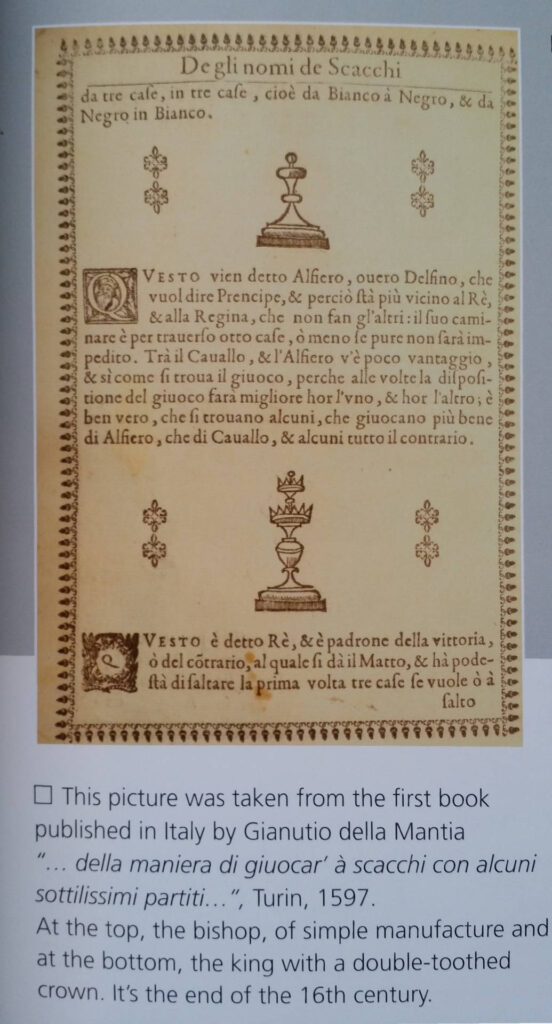 De gli nomi de Scacchi
da tre case, in tre case, cioè da Bianco à Negro, & da
Negro in Bianco.
QVESTO vien detto Alfiero, ouero Delfino, che
vuol dire Prencipe, & perciò stà più vicino al Rè,
& alla Regina, che non fan gl'altri: il suo cami-
nare è per trauerso otto case, ò meno se pure non sarà im-
pedito. Trà il Cauallo, & l'Alfiero v'è poco vantaggio,
& sì come si troua il giuoco, perche alle volte la disposi-
tione del giuoco farà migliore hor l'vno, & hor l'altro; è
ben vero, che si trouano alcuni, che giuocano più bene
di Alfiero, che di Cauallo, & alcuni tutto il contrario.
QVESTO è detto Rè, & è padrone della vittoria,
ò del cõtrario, al quale si dà il Matto, & hà pode-
stà di saltare la prima volta tre case se vuole ò à
salto
□ This picture was taken from the first book
published in Italy by Gianutio della Mantia
“... della maniera di giuocar’ à scacchi con alcuni
sottilissimi partiti...”, Turin, 1597.
At the top, the bishop, of simple manufacture and
at the bottom, the king with a double-toothed
crown. It’s the end of the 16th century.